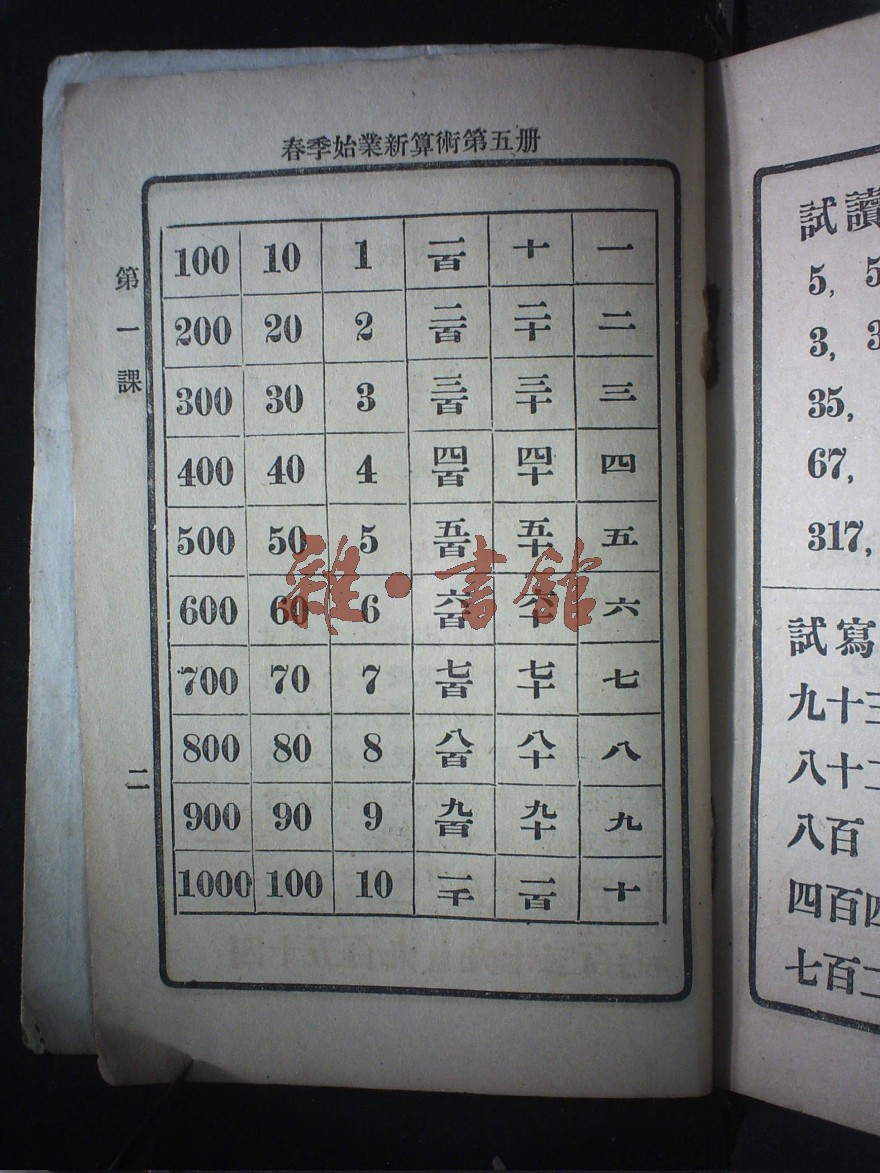 春季始業新算術第五册
第一課
二
100 10 1 一百 十 一
200 20 2 二百 二十 二
300 30 3 三百 三十 三
400 40 4 四百 四十 四
500 50 5 五百 五十 五
600 60 6 六百 六十 六
700 70 7 七百 七十 七
800 80 8 八百 八十 八
900 90 9 九百 九十 九
1000 100 10 一千 一百 十
雜·書館
試讀
5, 5
3, 3
35,
67,
317,
試寫
九十三
八十二
八百
四百四
七百二